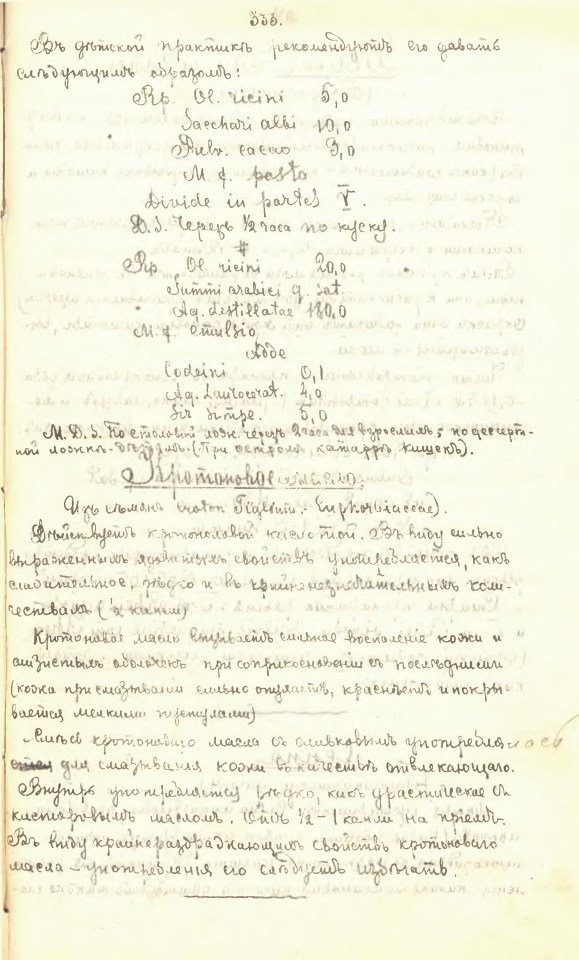 333.
Въ дѣтской практикѣ рекомендуютъ его давать
слѣдующимъ образомъ:
Rp. Ol. ricini 5,0
Sacchari albi 10,0
Pulv. cacao 3,0
M. f. pasta
Divide in partes V.
D. S. Черезъ 1/2 часа по куску.
#
Rp Ol ricini 20,0
Gummi arabici q. sat.
Aq. destillatae 180,0
M. f. emulsio
Adde
Codeini 0,1
Aq. Laurocerat. 4,0
Sir simpl. 5,0
M. D. S. По столовой лож. черезъ 2 часа для взрослыхъ, по десерт-
ной ложкѣ - дѣтямъ. (При остромъ катаррѣ кишекъ).
Кротоновое масло.
Изъ сѣмянъ Croton Tiglium. - Euphorbiaceae).
Дѣйствуетъ кротоноловой кислотой. Въ виду сильно
выраженныхъ ядовитыхъ свойствъ употребляется, какъ
слабительное, рѣдко и въ крайне незначительныхъ коли-
чествахъ (1/2 капли)
Кротоновое масло вызываетъ сильное воспаленіе кожи и
слизистыхъ оболочекъ при соприкосновеніи съ послѣдними
(кожа при смазываніи сильно опухаетъ, краснѣетъ и покры-
вается мелкими пустулами)
Смѣсь кротоноваго масла съ оливковымъ употреблялось
для смазыванія кожи въ качествѣ отвлекающаго.
Внутрь употребляется рѣдко, какъ драстическое съ
касторовымъ масломъ. Отъ 1/2 - 1 капли на пріемъ.
Въ виду крайне раздражающихъ свойствъ кротоноваго
масла - употребленія его слѣдуетъ избѣгать.